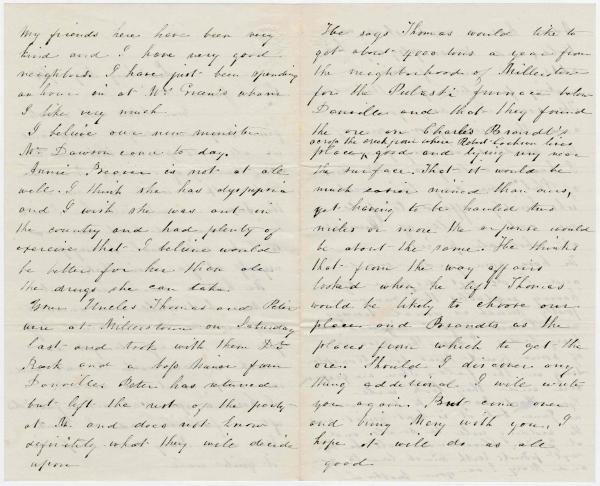 My friends here have been very
kind and I have very good
neighbors. I have just been spending
an hour in at Mrs Green's whom
I like very much.
I believe our new minister
Mr Dawson came to day.
Annie is not at all
well. I think she has dyspepsia
and I wish she was out in
the country and had plenty of
exercise that I believe would
be better for her than all
the drugs she can take.
Your Uncles Thomas and Peter
were at Millerstown on Saturday
last and took with them Dr
and a boss miner from
Danville. Peter has returned
but left the rest of the party
at M. and does not know
definitely what they will decide
upon
He says Thomas would like to
get about 4000 tons a year from
the neighborhood of Millerstown
for the Pulaski furnace below
Danville and that they found
the ore on Charles Brandt's
across the creek from where Robert lives
place, good and lying very near
the surface. That it would be
much easier mined than ours,
yet having to be hauled two
miles or more the expense would
be about the same. He thinks
that from the way affairs
looked when he left Thomas
would be likely to choose our
place and Brandts as the
places from which to get the
ore. Should I discover any
thing additional I will write
you again. But come over
and bring Mary with you, I
hope it will do us all
good